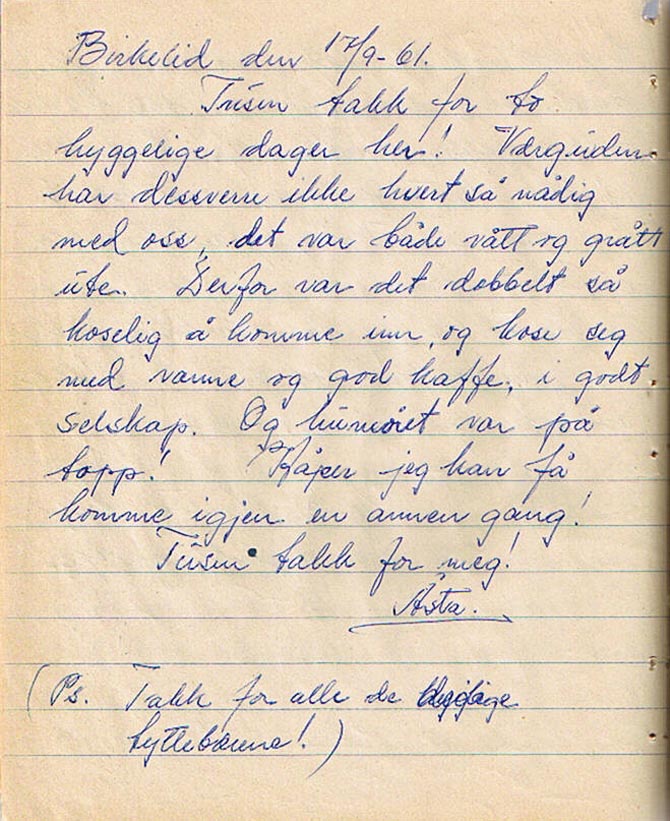 Birkelid den 17/9-61.
Tusen takk for to
hyggelige dager her! Værguden
har dessverre ikke hvert så nådig
med oss, det var både vått og grått
ute. Derfor var det dobbelt så
koselig å komme inn, og kose seg
med varme og god kaffe, i godt
selskap. Og humøret var på
topp! Håper jeg kan få
komme igjen en annen gang!
Tusen takk for meg!
Åsta.
(Ps. Takk for alle de
tyttebærene!)